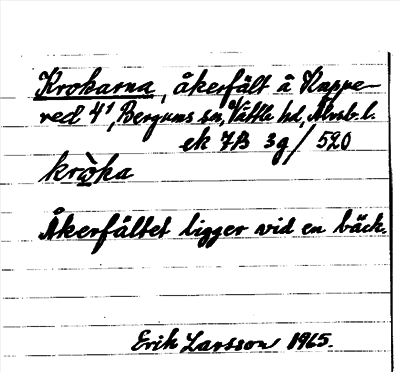 Krokarna, åkerfält å Knappe-
red 4¹, Bergums sn, Vättle hd, Älvsb. l.
ek 7B 3g/520
krò̱ka
Åkerfältet ligger vid en bäck.
Erik Larsson 1965.